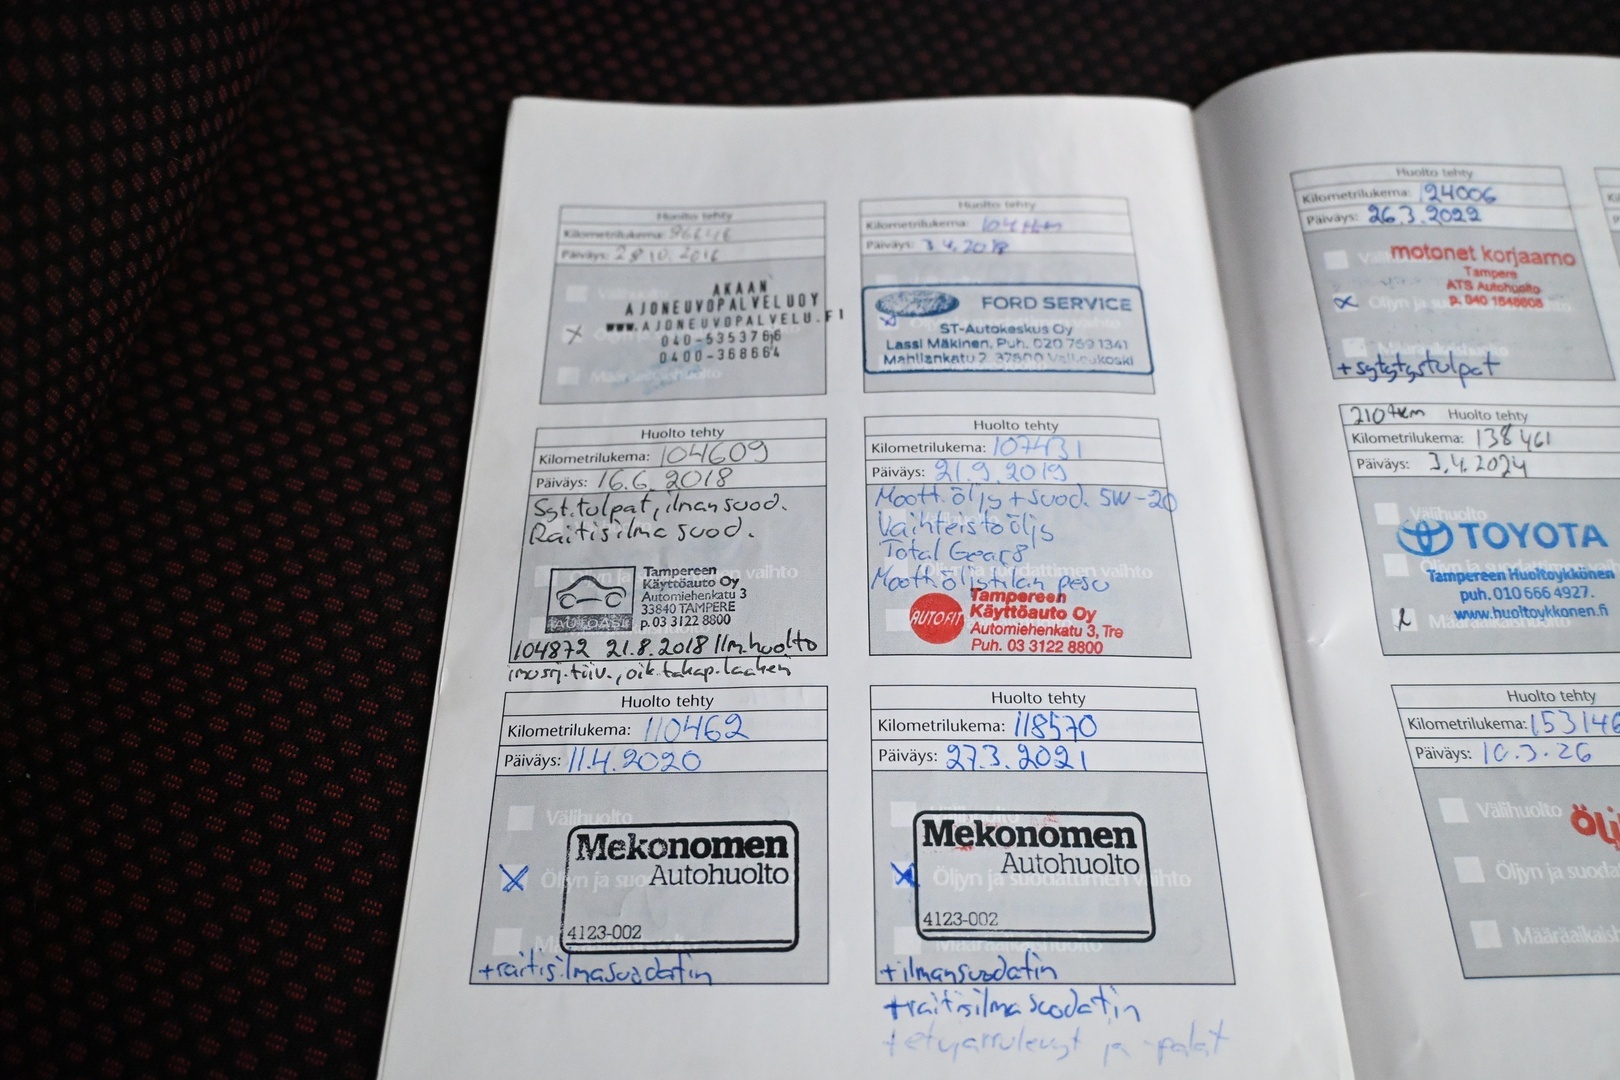 Huolto tehty
Kilometrilukema:
Päiväys: 28.10.2016
AKAAN
AJONEUVOPALVELUOY
www.AJONEUVOPALVELU.FI
040-5353766
0400-368664
Määräaikaishuolto
Huolto tehty
Kilometrilukema: 104 tkm
Päiväys: 3.4.2018
FORD SERVICE
ST-Autokeskus Oy
Lassi Mäkinen, Puh. 020 769 1341
Mahliankatu 2 37600 Valkeakoski
Huolto tehty
Kilometrilukema: 104609
Päiväys: 16.6.2018
Syt.tulpat, ilmansuod.
Raitisilma suod.
Tampereen
Käyttöauto Oy
Automiehenkatu 3
33840 TAMPERE
p. 03 3122 8800
AUTOASI
104872 21.8.2018 Ilm.huolto
imusrj.tiiv., oik.takap.laakeri
Huolto tehty
Kilometrilukema: 107431
Päiväys: 21.9.2019
Moott.öljy + suod. 5W-20
Vaihteistoöljy
Total Gear8
Moott.öljytilan pesu
Öljyn ja suodattimen vaihto
AUTOFIT
Tampereen
Käyttöauto Oy
Automiehenkatu 3, Tre
Puh. 03 3122 8800
Huolto tehty
Kilometrilukema: 110462
Päiväys: 11.4.2020
Välihuolto
Öljyn ja suo
Mekonomen
Autohuolto
4123-002
+raitisilmasuodatin
Huolto tehty
Kilometrilukema: 118570
Päiväys: 27.3.2021
Mekonomen
Autohuolto
Öljyn ja suodattimen vaihto
4123-002
Määräaikaishuolto
+ilmansuodatin
+raitisilmasuodatin
+etujarrulevyt ja -palat
Huolto tehty
Kilometrilukema: 124006
Päiväys: 26.3.2022
motonet korjaamo
Tampere
ATS Autohuolto
p. 040 1648608
Määräaikaishuolto
+sytytystulpat
210tkm Huolto tehty
Kilometrilukema: 138461
Päiväys: 3.4.2024
Välihuolto
TOYOTA
Tampereen Huoltoykkönen
puh. 010 666 4927.
www.huoltoykkonen.fi
Huolto tehty
Kilometrilukema: 153146
Päiväys: 10.3.26
Välihuolto
Öljyn ja suoda
Määräaikaish